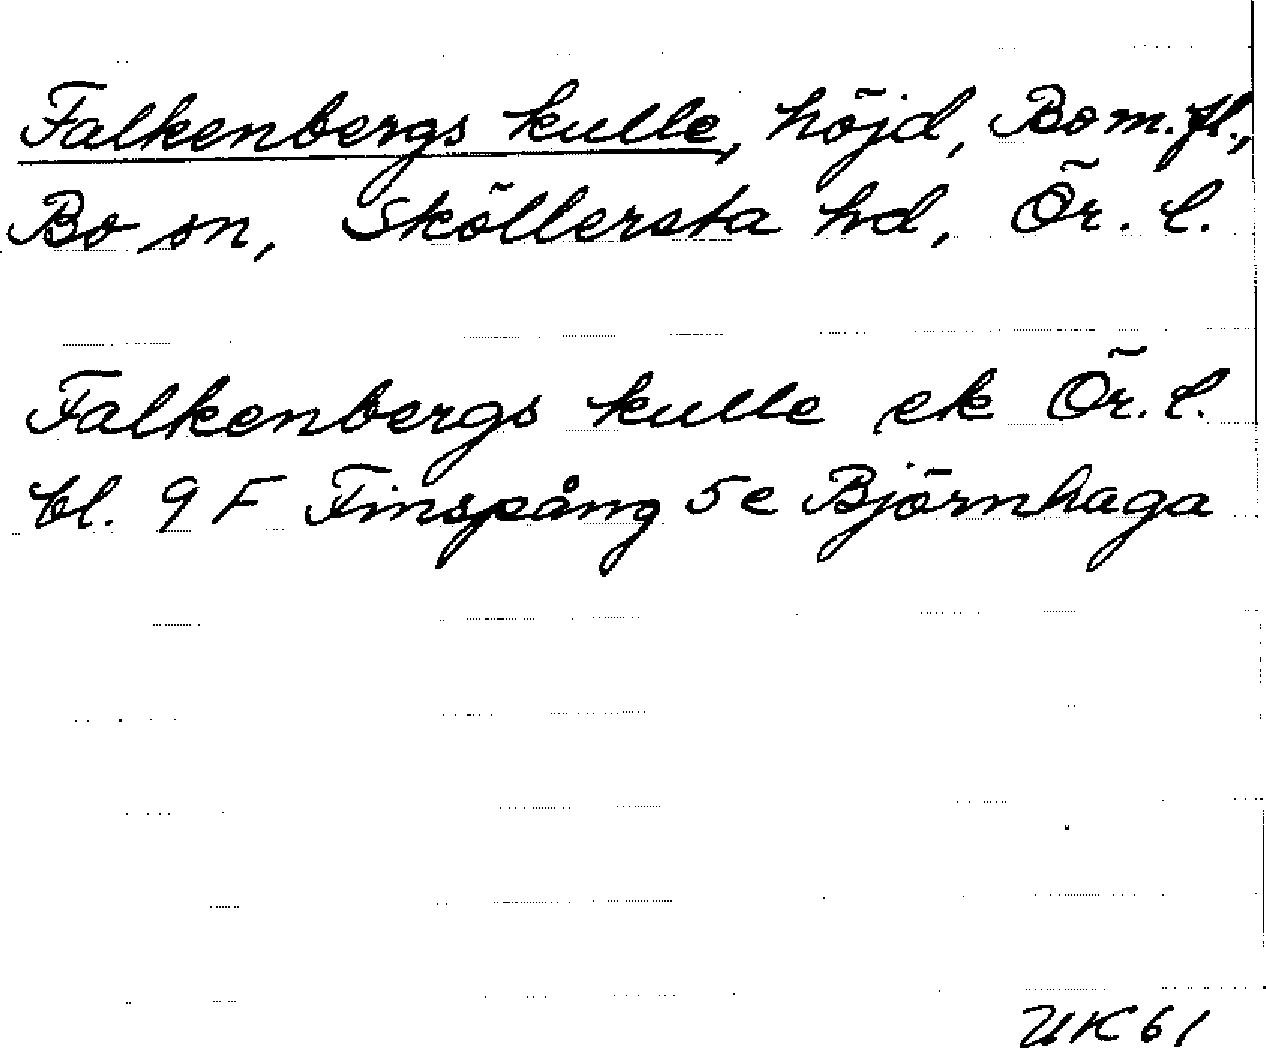 Falkenbergs kulle, höjd, Bo m. fl.,
Bo sn, Sköllersta hd, Ör. l.
Falkenbergs kulle ek Ör. l.
bl. 9 F Finspång 5e Björnhaga
UK 61